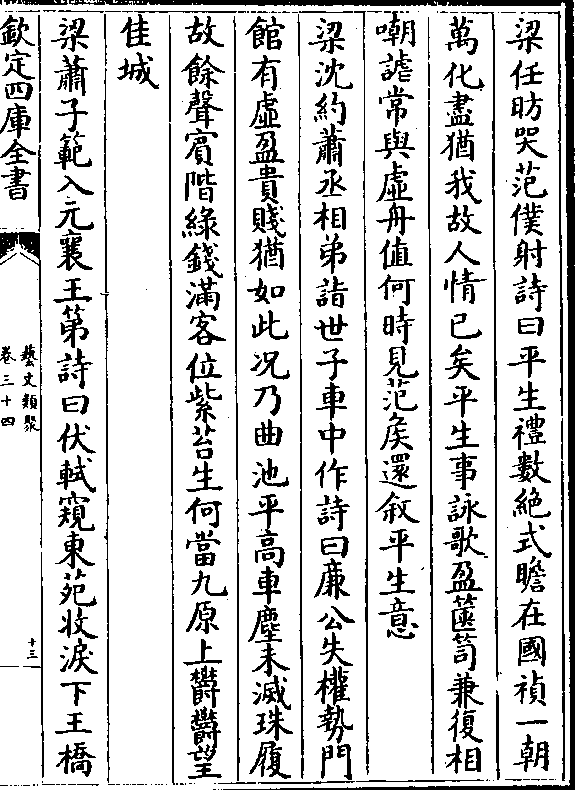 梁任昉哭范僕射詩曰平生禮數絶式瞻在國禎一朝
萬化盡猶我故人情已矣平生事詠歌盈篋笥兼復相
嘲謔常與虛舟值何時見范侯還叙平生意
梁沈約蕭丞相弟詣世子車中作詩曰廉公失權勢門
館有虛盈貴賤猶如此况乃曲池平高車塵未滅珠履
故餘聲賓階綠錢滿客位紫苔生何當九原上鬱鬱望
佳城
梁蕭子範入元襄王第詩曰伏軾窺東苑收淚下王橋
欽定四庫全書
藝文類聚
卷三十四
十三